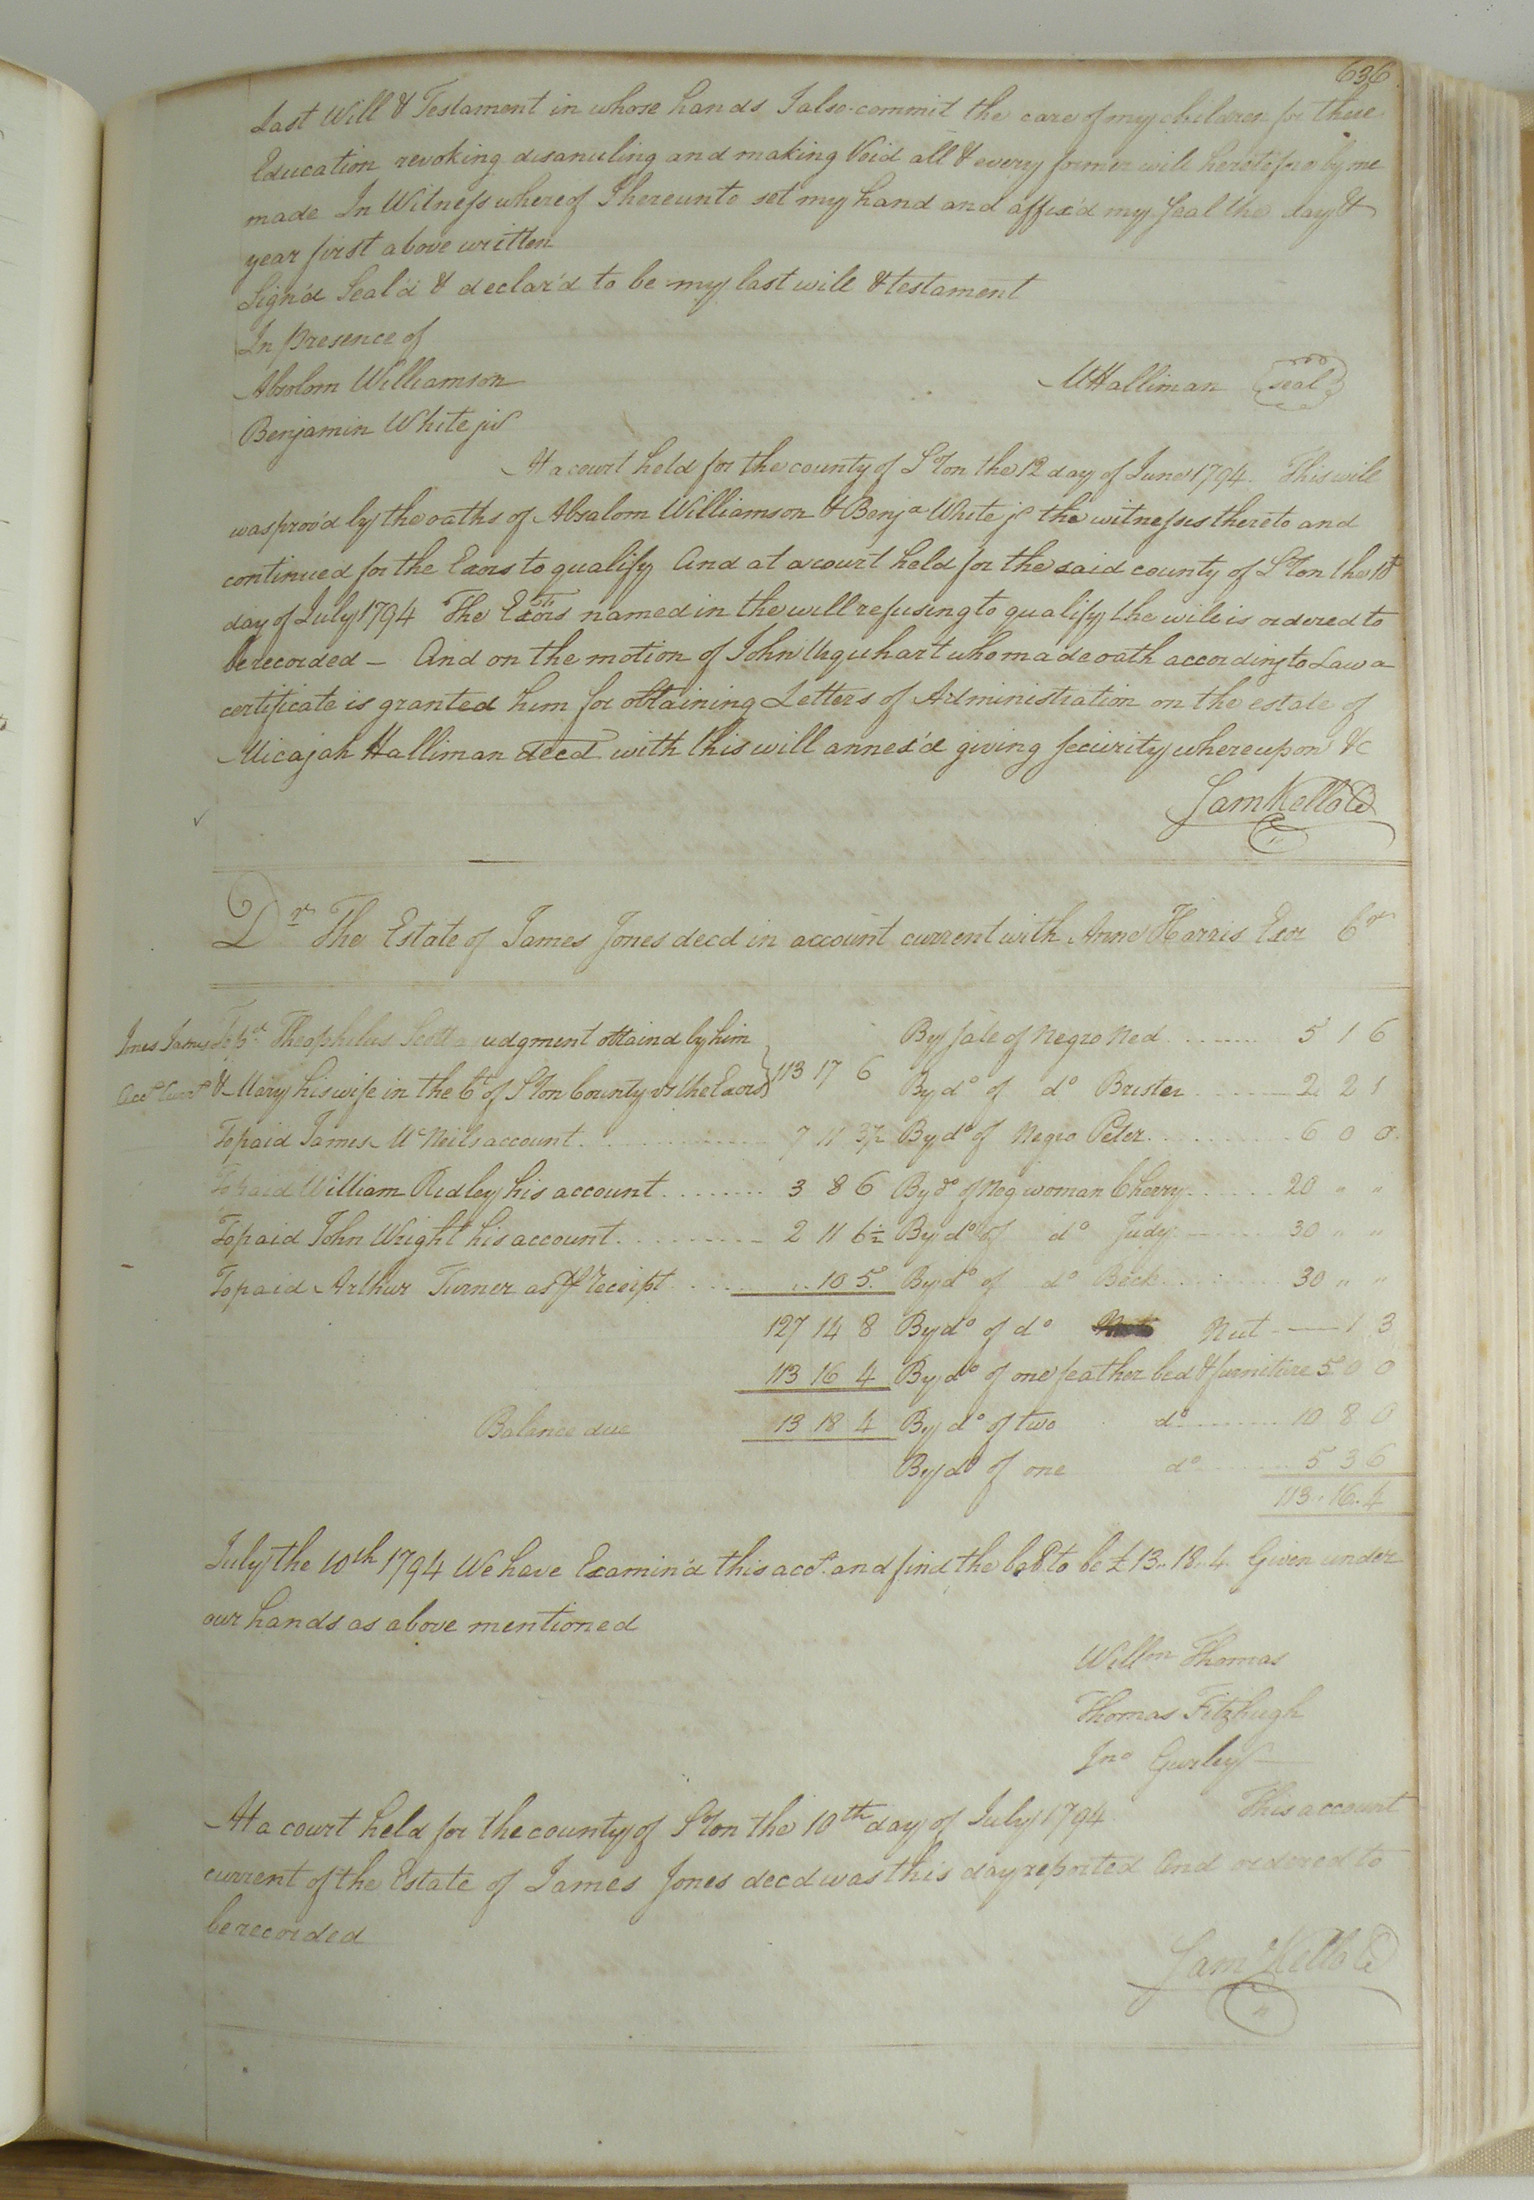 636
Last Will & Testament in whose hands I also commit the care of my children for there
Education revoking disanuling and making Void all & every former will heretofore by me
made In Witness whereof I hereunto set my hand and affix'd my Seal the day &
year first above written
Sign'd Seal'd & declar'd to be my last will & testament
In presence of
Absolom Williamson
MHalliman seal
Benjamin White jur
At a court held for the county of Sºton the 12 day of June 1794. This will
was prov'd by the oaths of Absalom Williamson & Benja White jr the witnesses thereto and
continued for the Exors to qualify And at a court held for the said county of Sºton the 10th
day of July 1794 The Exors named in the will refusing to qualify the will is ordered to
be recorded - And on the motion of John Urquhart who made oath according to Law a
certificate is granted him for obtaining Letters of Administration on the estate of
Micajah Halliman decd with this will annex'd giving security whereupon &c
Sam Kello Cl
Dr The Estate of James Jones decd in account current with Anne Harris Exr Cr
Jones James To pd Theophilus Scott a judgment obtaind by him
Acct Currt & Mary his wife in the Ct of Sºton County vs the Exors } 113 17 6
By Sale of Negro Ned 5 1 6
By do of do Brister 2 2 1
To paid James McNeils account 7 11 3½ By do of Negro Peter 6 0 0
To paid William Ridley his account 3 8 6 By do of Neg woman Cherry 20 " "
To paid John Wright his account 2 11 6½ By do of do Judy 30 " "
To paid Arthur Turner as pr receipt .. 10 5 By do of do Beck 30 " "
127 14 8 By do of do Nut 1 3
113 16 4 By do of one feather bed & furniture 5 0 0
Balance due 13 18 4 By do of two do 10 8 0
By do of one do 5 3 6
113.16.4
July the 10th 1794 We have Examin'd this acct and find the bale to be £13.18.4 Given under
our hands as above mentioned
Willm Thomas
Thomas Fitzhugh
Jno Gurley
At a court held for the county of Sºton the 10th day of July 1794 This account
current of the Estate of James Jones decd was this day reported And ordered to
be recorded
Saml Kello Cl